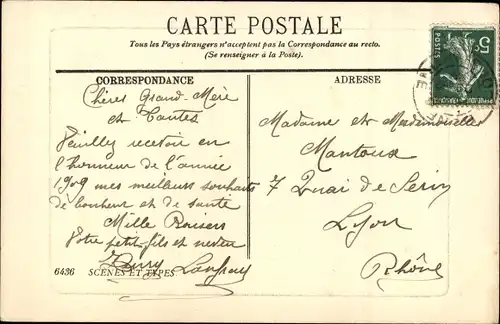 CARTE POSTALE
Tous les Pays étrangers n'acceptent pas la Correspondance au recto.
(Se renseigner à la Poste).
CORRESPONDANCE
ADRESSE
Chères Grand-Mère
et Tantes
Veuillez recevoir en
l'honneur de l'année
1909 mes meilleurs souhaits
de bonheur et de santé
Mille Baisers
Votre petit-fils et neveu
6436 SCÈNES ET TYPES
Madame et Mesdemoiselles
Mantoux
7 Quai de Serin
Lyon
Rhône
5c
POSTES